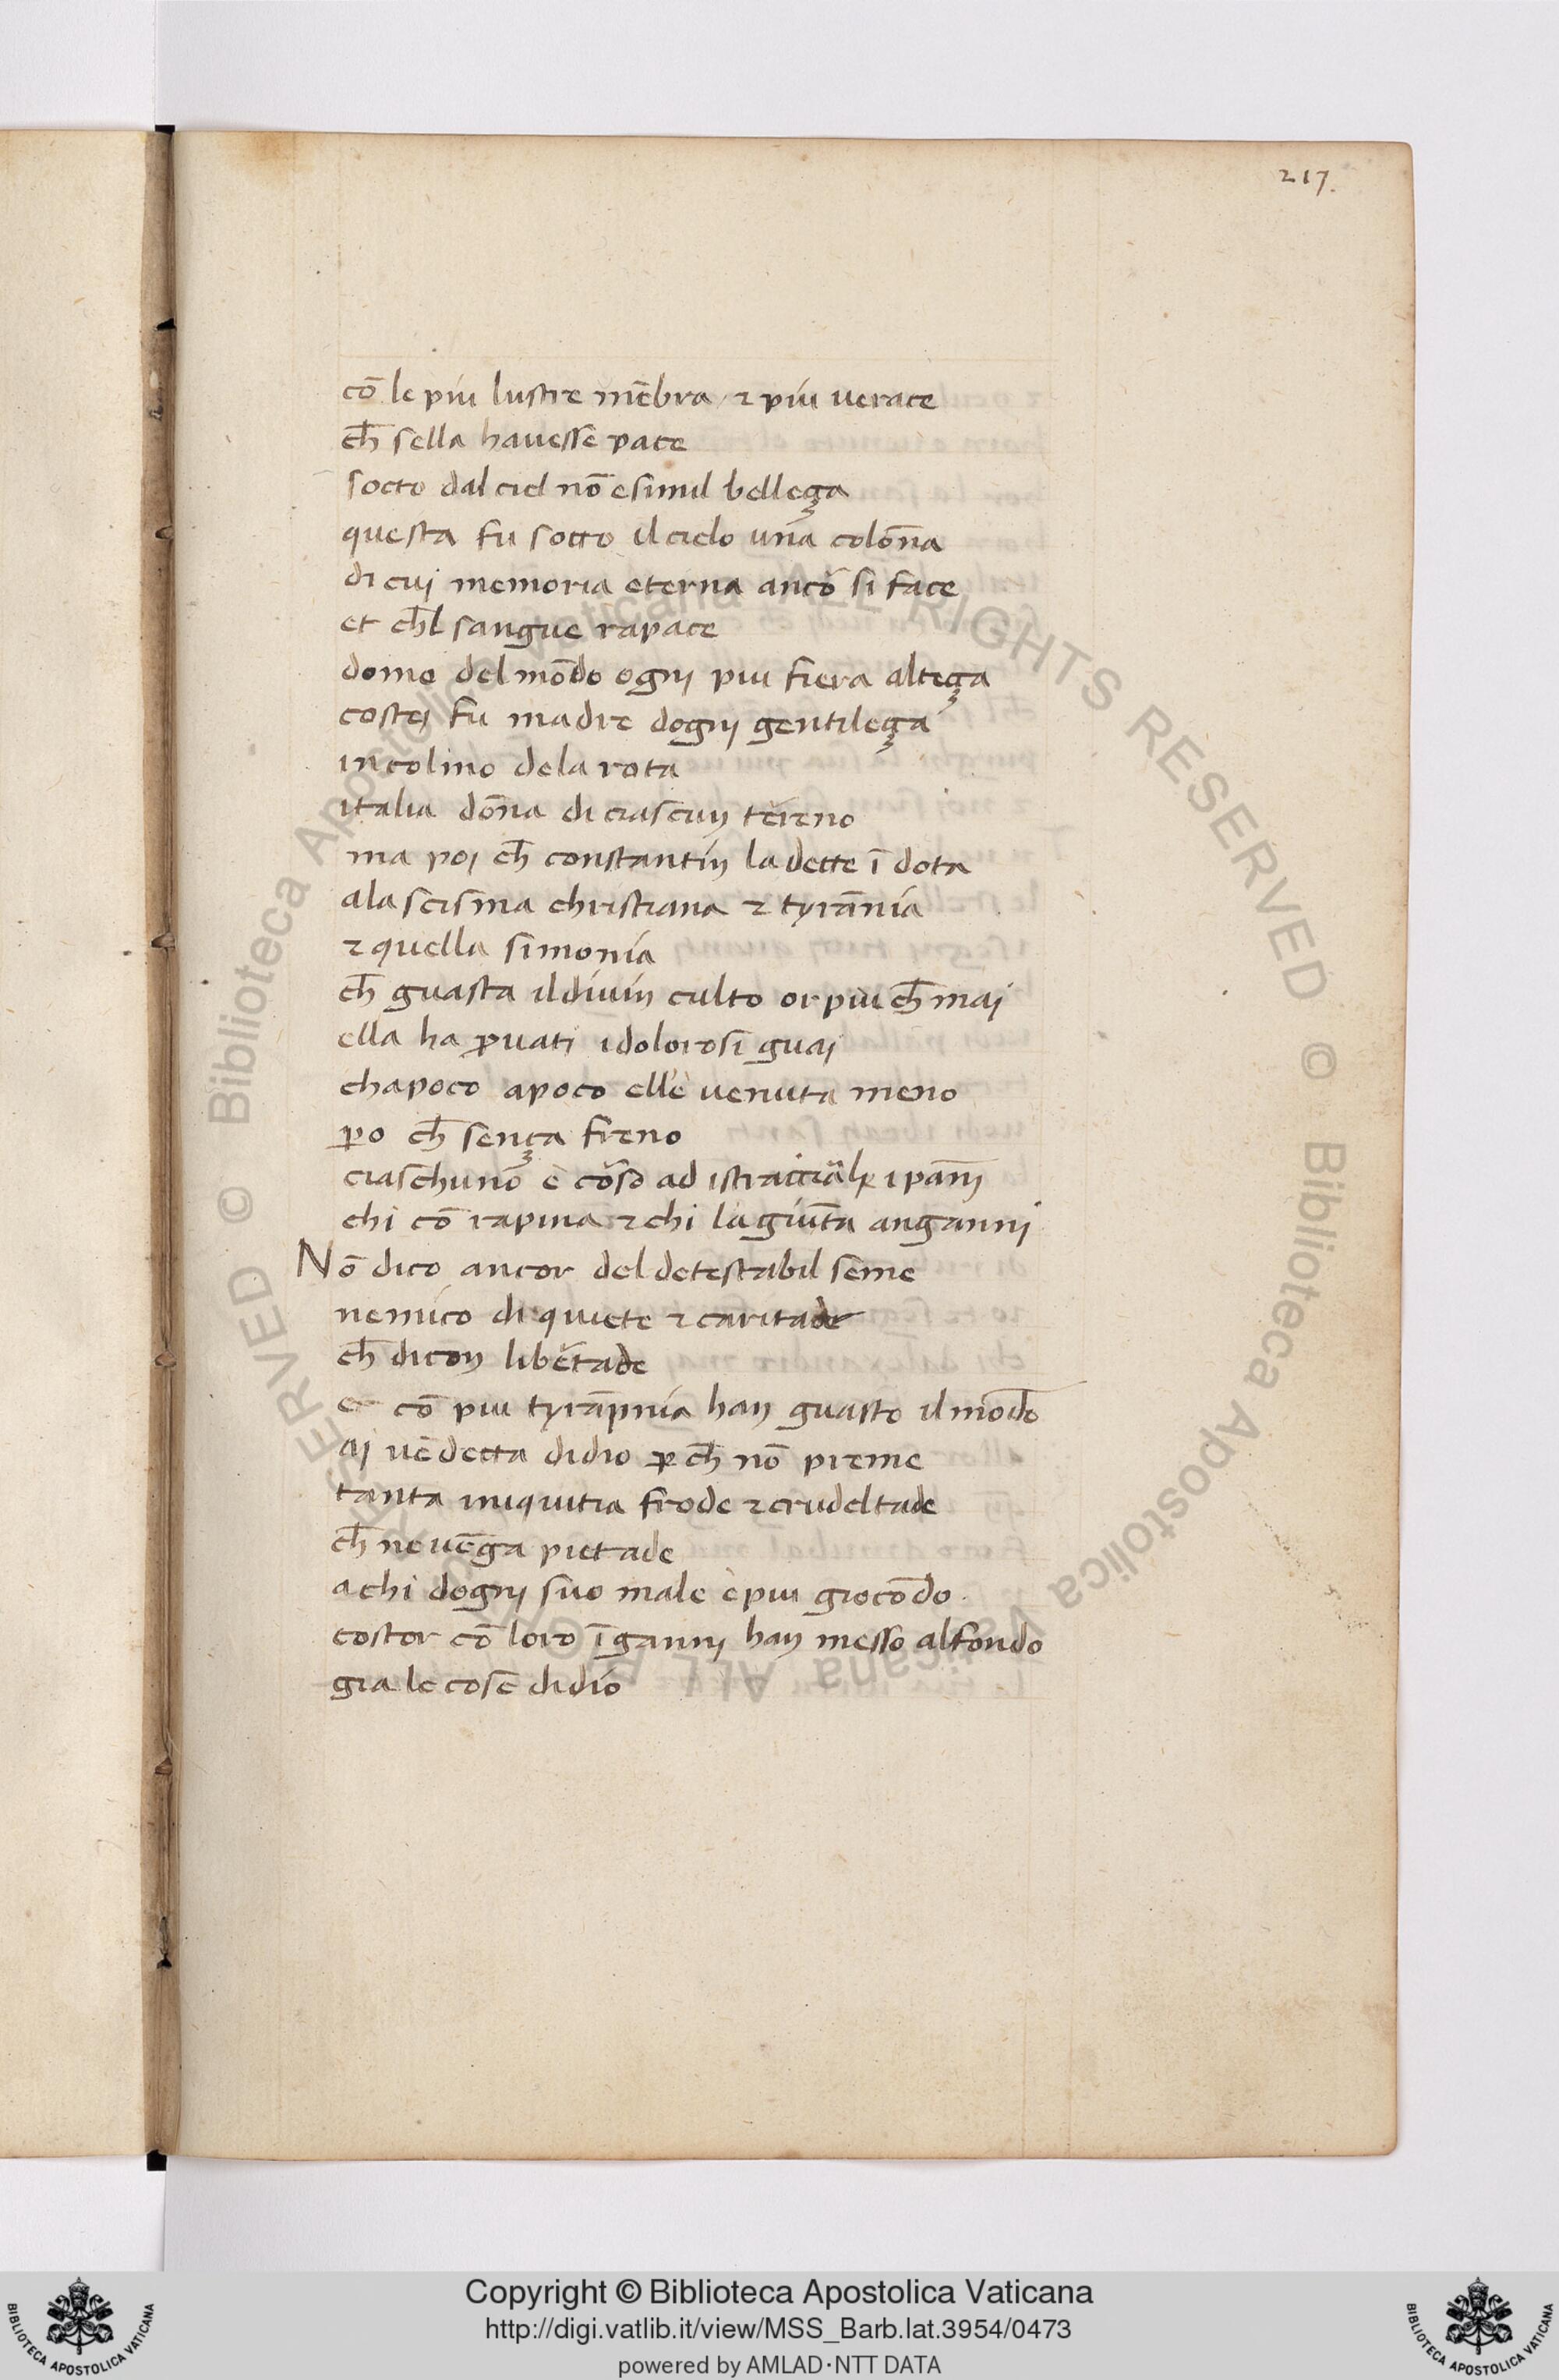 217.
cō le piu lustre mēbra ⁊ piu uerace
ch̄ sella hauesse pace
socto dal ciel nō e simil belleça
questa fu socto il cielo una colōna
di cui memoria eterna ancō si face
et ch̄l sangue rapace
domo del mōdo ogni piu fiera alteça
costei fu madre dogni gentileça
in colmo dela rota
italia dōna di ciascun tēreno
ma poi ch̄ constantin la dette ī dota
a la scisma christiana ⁊ tyrānia
⁊ quella simonia
ch̄ guasta il diuin culto or piu ch̄ mai
ella ha ꝓuati i dolorosi guai
chapoco apoco elle uenuta meno
ꝑo ch̄ sença freno
ciaschuno è cōso ad istracciarli panni
chi cō rapina ⁊ chi la giūta anganni
Nō dico ancor del detestabil seme
nemico di quiete ⁊ caritade
ch̄ dicon libertade
et cō piu tyrāpnia han guasto il mōdo
ai uēdetta di dio ꝑ ch̄ nō preme
tanta iniquitia frode ⁊ crudeltade
ch̄ ne uēga pietade
a chi dogni suo male è piu giocōdo
costor cō loro īganni han messo al fondo
gia le cose di dio
Copyright © Biblioteca Apostolica Vaticana
http://digi.vatlib.it/view/MSS_Barb.lat.3954/0473
powered by AMLAD·NTT DATA
BIBLIOTECA APOSTOLICA VATICANA
BIBLIOTECA APOSTOLICA VATICANA
© Biblioteca Apostolica Vaticana ALL RIGHTS RESERVED © Biblioteca Apostolica Vaticana ALL RIGHTS RESERVED